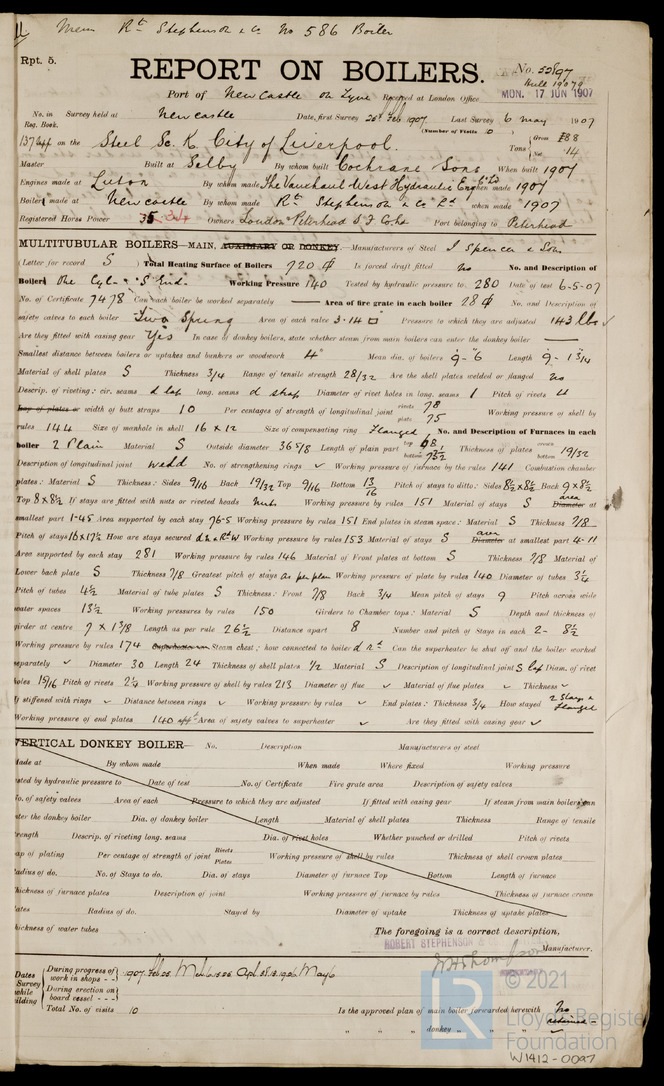 Mem Rt Stephenson & Co No 586 Boiler
Rpt. 5.
REPORT ON BOILERS.
No. 52897
Hull 19079
Port of Newcastle on Tyne Received at London Office MON. 17 JUN 1907
No. in Reg. Book. Survey held at Newcastle Date, first Survey 25th Feb 1907 Last Survey 6 May 1907
(Number of Visits 10)
on the Steel Sc. K. City of Liverpool. Tons Gross 188 Net 14
Master Built at Selby By whom built Cochrane & Sons When built 1907
Engines made at Luton By whom made The Vauxhall & West Hydraulic Eng Co Ld when made 1907
Boilers made at Newcastle By whom made Rt Stephenson & Co Ld when made 1907
Registered Horse Power 35 Owners London & Peterhead S F Co Ld Port belonging to Peterhead
MULTITUBULAR BOILERS—MAIN, AUXILIARY OR DONKEY.—Manufacturers of Steel J Spencer & Sons
(Letter for record S) Total Heating Surface of Boilers 720 Is forced draft fitted No No. and Description of
Boilers One Cyl. S End. Working Pressure 140 Tested by hydraulic pressure to 280 Date of test 6-5-07
No. of Certificate 7478 Can each boiler be worked separately — Area of fire grate in each boiler 28 No. and Description of
safety valves to each boiler Two Spring Area of each valve 3.14 Pressure to which they are adjusted 143 lbs
Are they fitted with easing gear Yes In case of donkey boilers, state whether steam from main boilers can enter the donkey boiler —
Smallest distance between boilers or uptakes and bunkers or woodwork 4" Mean dia. of boilers 9-6 Length 9-1 3/4
Material of shell plates S Thickness 3/4 Range of tensile strength 28/32 Are the shell plates welded or flanged No
Descrip. of riveting: cir. seams d lap long. seams d strap Diameter of rivet holes in long. seams 1 Pitch of rivets 4
Lap of plates or width of butt straps 10 Per centages of strength of longitudinal joint rivets 78 plate 75 Working pressure of shell by
rules 144 Size of manhole in shell 16 x 12 Size of compensating ring Flanged No. and Description of Furnaces in each
boiler 2 Plain Material S Outside diameter 36 5/8 Length of plain part top 68 bottom 73 1/2 Thickness of plates crown bottom 19/32
Description of longitudinal joint weld No. of strengthening rings ✓ Working pressure of furnace by the rules 141 Combustion chamber
plates: Material S Thickness: Sides 9/16 Back 19/32 Top 9/16 Bottom 13/16 Pitch of stays to ditto: Sides 8 1/2 x 8 1/2 Back 9 x 8 1/2
Top 8 x 8 1/2 If stays are fitted with nuts or riveted heads Nuts Working pressure by rules 151 Material of stays S area Diameter at
smallest part 1.45 Area supported by each stay 76.5 Working pressure by rules 151 End plates in steam space: Material S Thickness 7/8
Pitch of stays 16 x 17 1/2 How are stays secured d.n & R W Working pressure by rules 153 Material of stays S area Diameter at smallest part 4.11
Area supported by each stay 281 Working pressure by rules 146 Material of Front plates at bottom S Thickness 7/8 Material of
Lower back plate S Thickness 7/8 Greatest pitch of stays as per plan Working pressure of plate by rules 140 Diameter of tubes 3 1/4
Pitch of tubes 4 1/2 Material of tube plates S Thickness: Front 7/8 Back 3/4 Mean pitch of stays 9 Pitch across wide
water spaces 13 1/2 Working pressures by rules 150 Girders to Chamber tops: Material S Depth and thickness of
girder at centre 7 x 1 3/8 Length as per rule 26 1/2 Distance apart 8 Number and pitch of Stays in each 2- 8 1/2
Working pressure by rules 174 Superheater or Steam chest; how connected to boiler d rt Can the superheater be shut off and the boiler worked
separately ✓ Diameter 30 Length 24 Thickness of shell plates 1/2 Material S Description of longitudinal joint S lap Diam. of rivet
holes 15/16 Pitch of rivets 2 1/4 Working pressure of shell by rules 213 Diameter of flue ✓ Material of flue plates ✓ Thickness ✓
If stiffened with rings ✓ Distance between rings ✓ Working pressure by rules ✓ End plates: Thickness 3/4 How stayed 2 Stays & Flanged
Working pressure of end plates 140 Area of safety valves to superheater ✓ Are they fitted with easing gear ✓
VERTICAL DONKEY BOILER— No. Description Manufacturers of steel
Made at By whom made When made Where fixed Working pressure
tested by hydraulic pressure to Date of test No. of Certificate Fire grate area Description of safety valves
No. of safety valves Area of each Pressure to which they are adjusted If fitted with easing gear If steam from main boilers can
enter the donkey boiler Dia. of donkey boiler Length Material of shell plates Thickness Range of tensile
strength Descrip. of riveting long. seams Dia. of rivet holes Whether punched or drilled Pitch of rivets
Lap of plating Per centage of strength of joint Rivets Plates Working pressure of shell by rules Thickness of shell crown plates
Radius of do. No. of Stays to do. Dia. of stays Diameter of furnace Top Bottom Length of furnace
Thickness of furnace plates Description of joint Working pressure of furnace by rules Thickness of furnace crown
plates Radius of do. Stayed by Diameter of uptake Thickness of uptake plates
Thickness of water tubes The foregoing is a correct description,
ROBERT STEPHENSON & Manufacturer.
Dates of Survey while building During progress of work in shops - - 1907. Feb 25
During erection on board vessel - - -
Total No. of visits 10 Is the approved plan of main boiler forwarded herewith No
" " " donkey " " "
© 2021
LR Lloyd's Register Foundation
W1412-0097